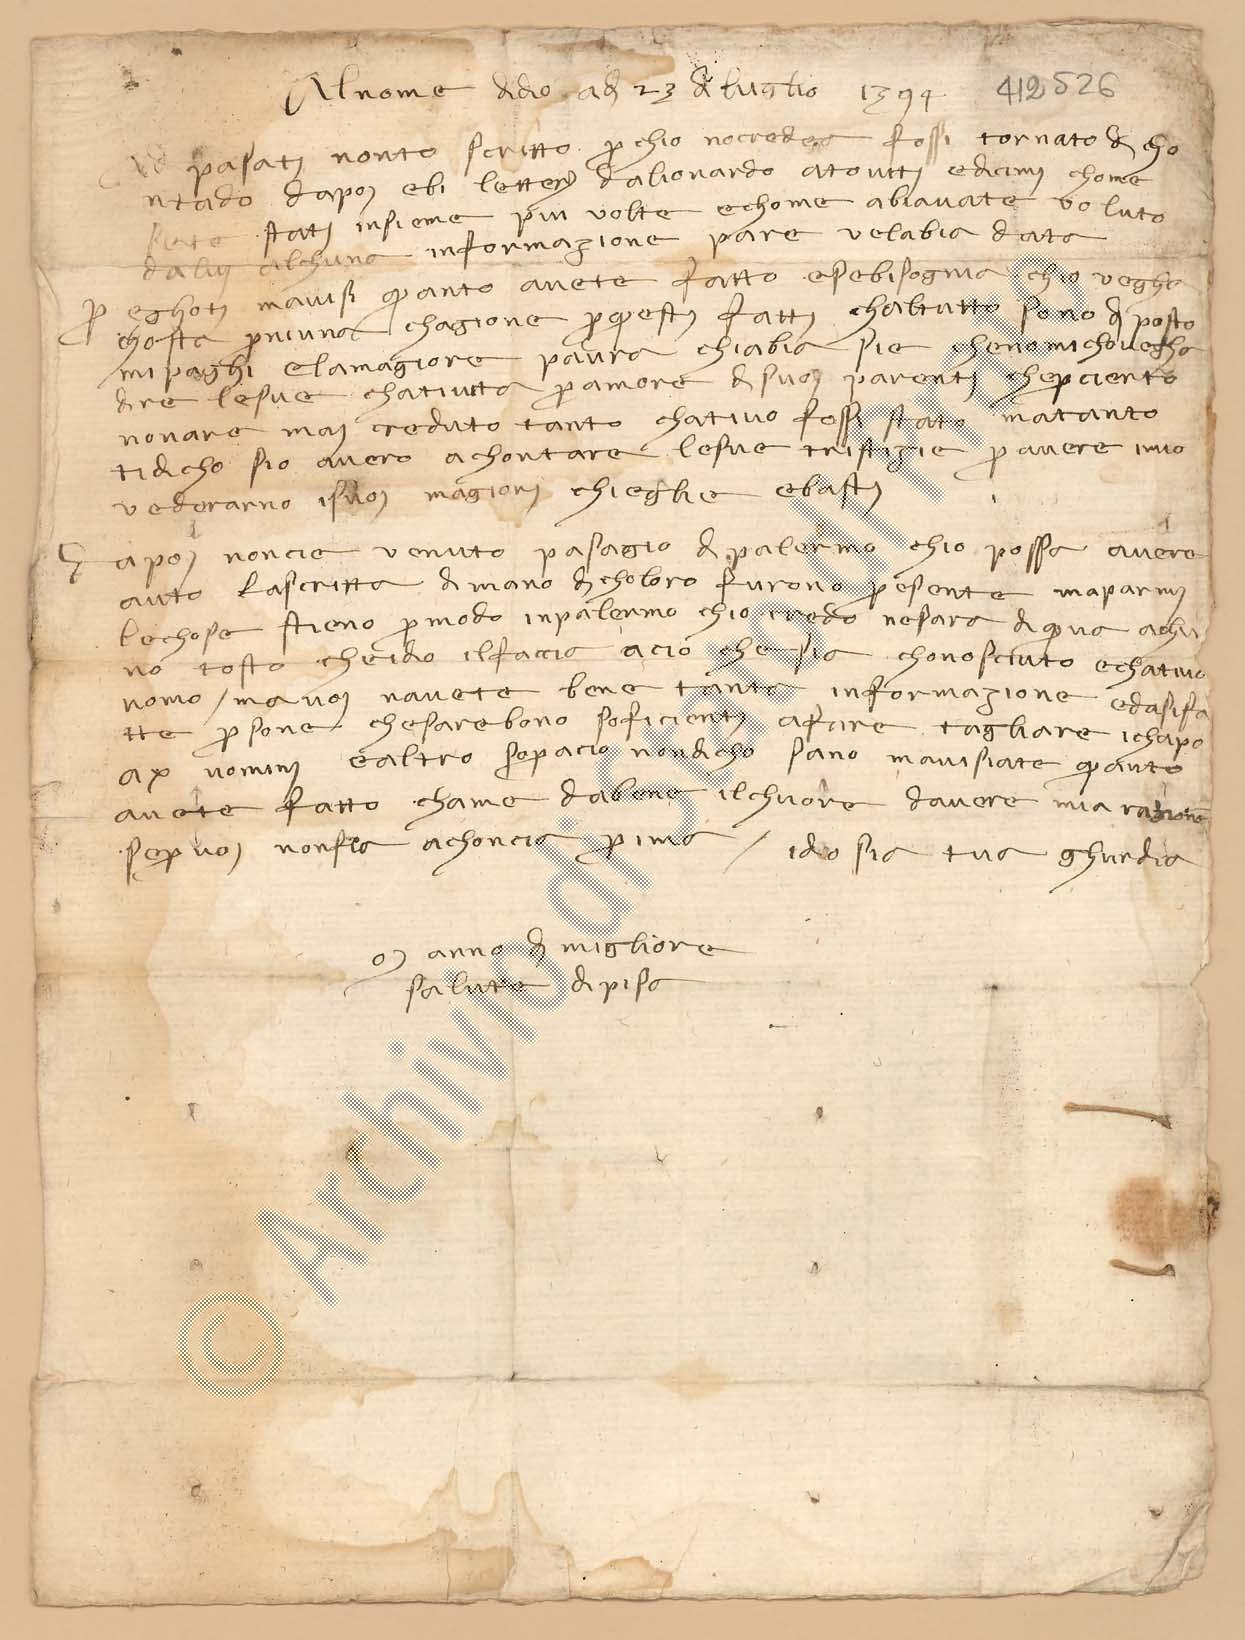 Al nome di dio adi 23 di luglio 1394
412526
pasati nonto scritto perchio nocredea fossi tornato di cho
ntado dapoi ebi lettera dalionardo atoviti edicimi chome
siete stati insieme piu volte echome abiavate voluto
dalui alchuna informazione pare velabia data
preghoti mavisi quanto avete fatto esebisogna chio vegha
chosta per niuna chagione per questi fatti chaltutto sono disposto
mi paghi elamagiore paura chiabia sie chenomichovegha
dire lesue chativita per amore di suoi parenti cheperciento
nonare mai creduto tanto chativo fossi stato matanto
tidicho sio avero achontare lesue tristizie per avere imio
vederarno isuoi magiori chieglie ebasti
Dapoi noncie venuto pasagio di palermo chio possa avere
auto lascritta di mano di choloro furono presente maparmi
lechose stieno per modo inpalermo chio credo nesara di qua achu
no tosto cheidio ilfaccia acio che sia chonosciuto echativo
uomo / mavoi navete bene tanta informazione edasifa
tte persone chesarebono soficienti afare tagliare ichapo
a x uomini ealtro sopacio nondicho sano mavisiate quanto
avete fatto chame dabene ilchuore davere mia razione
sepervoi nonfia achoncia prima / idio sia tua ghurdia
anno di migliore
salute di pisa
© Archivio di Stato di Prato